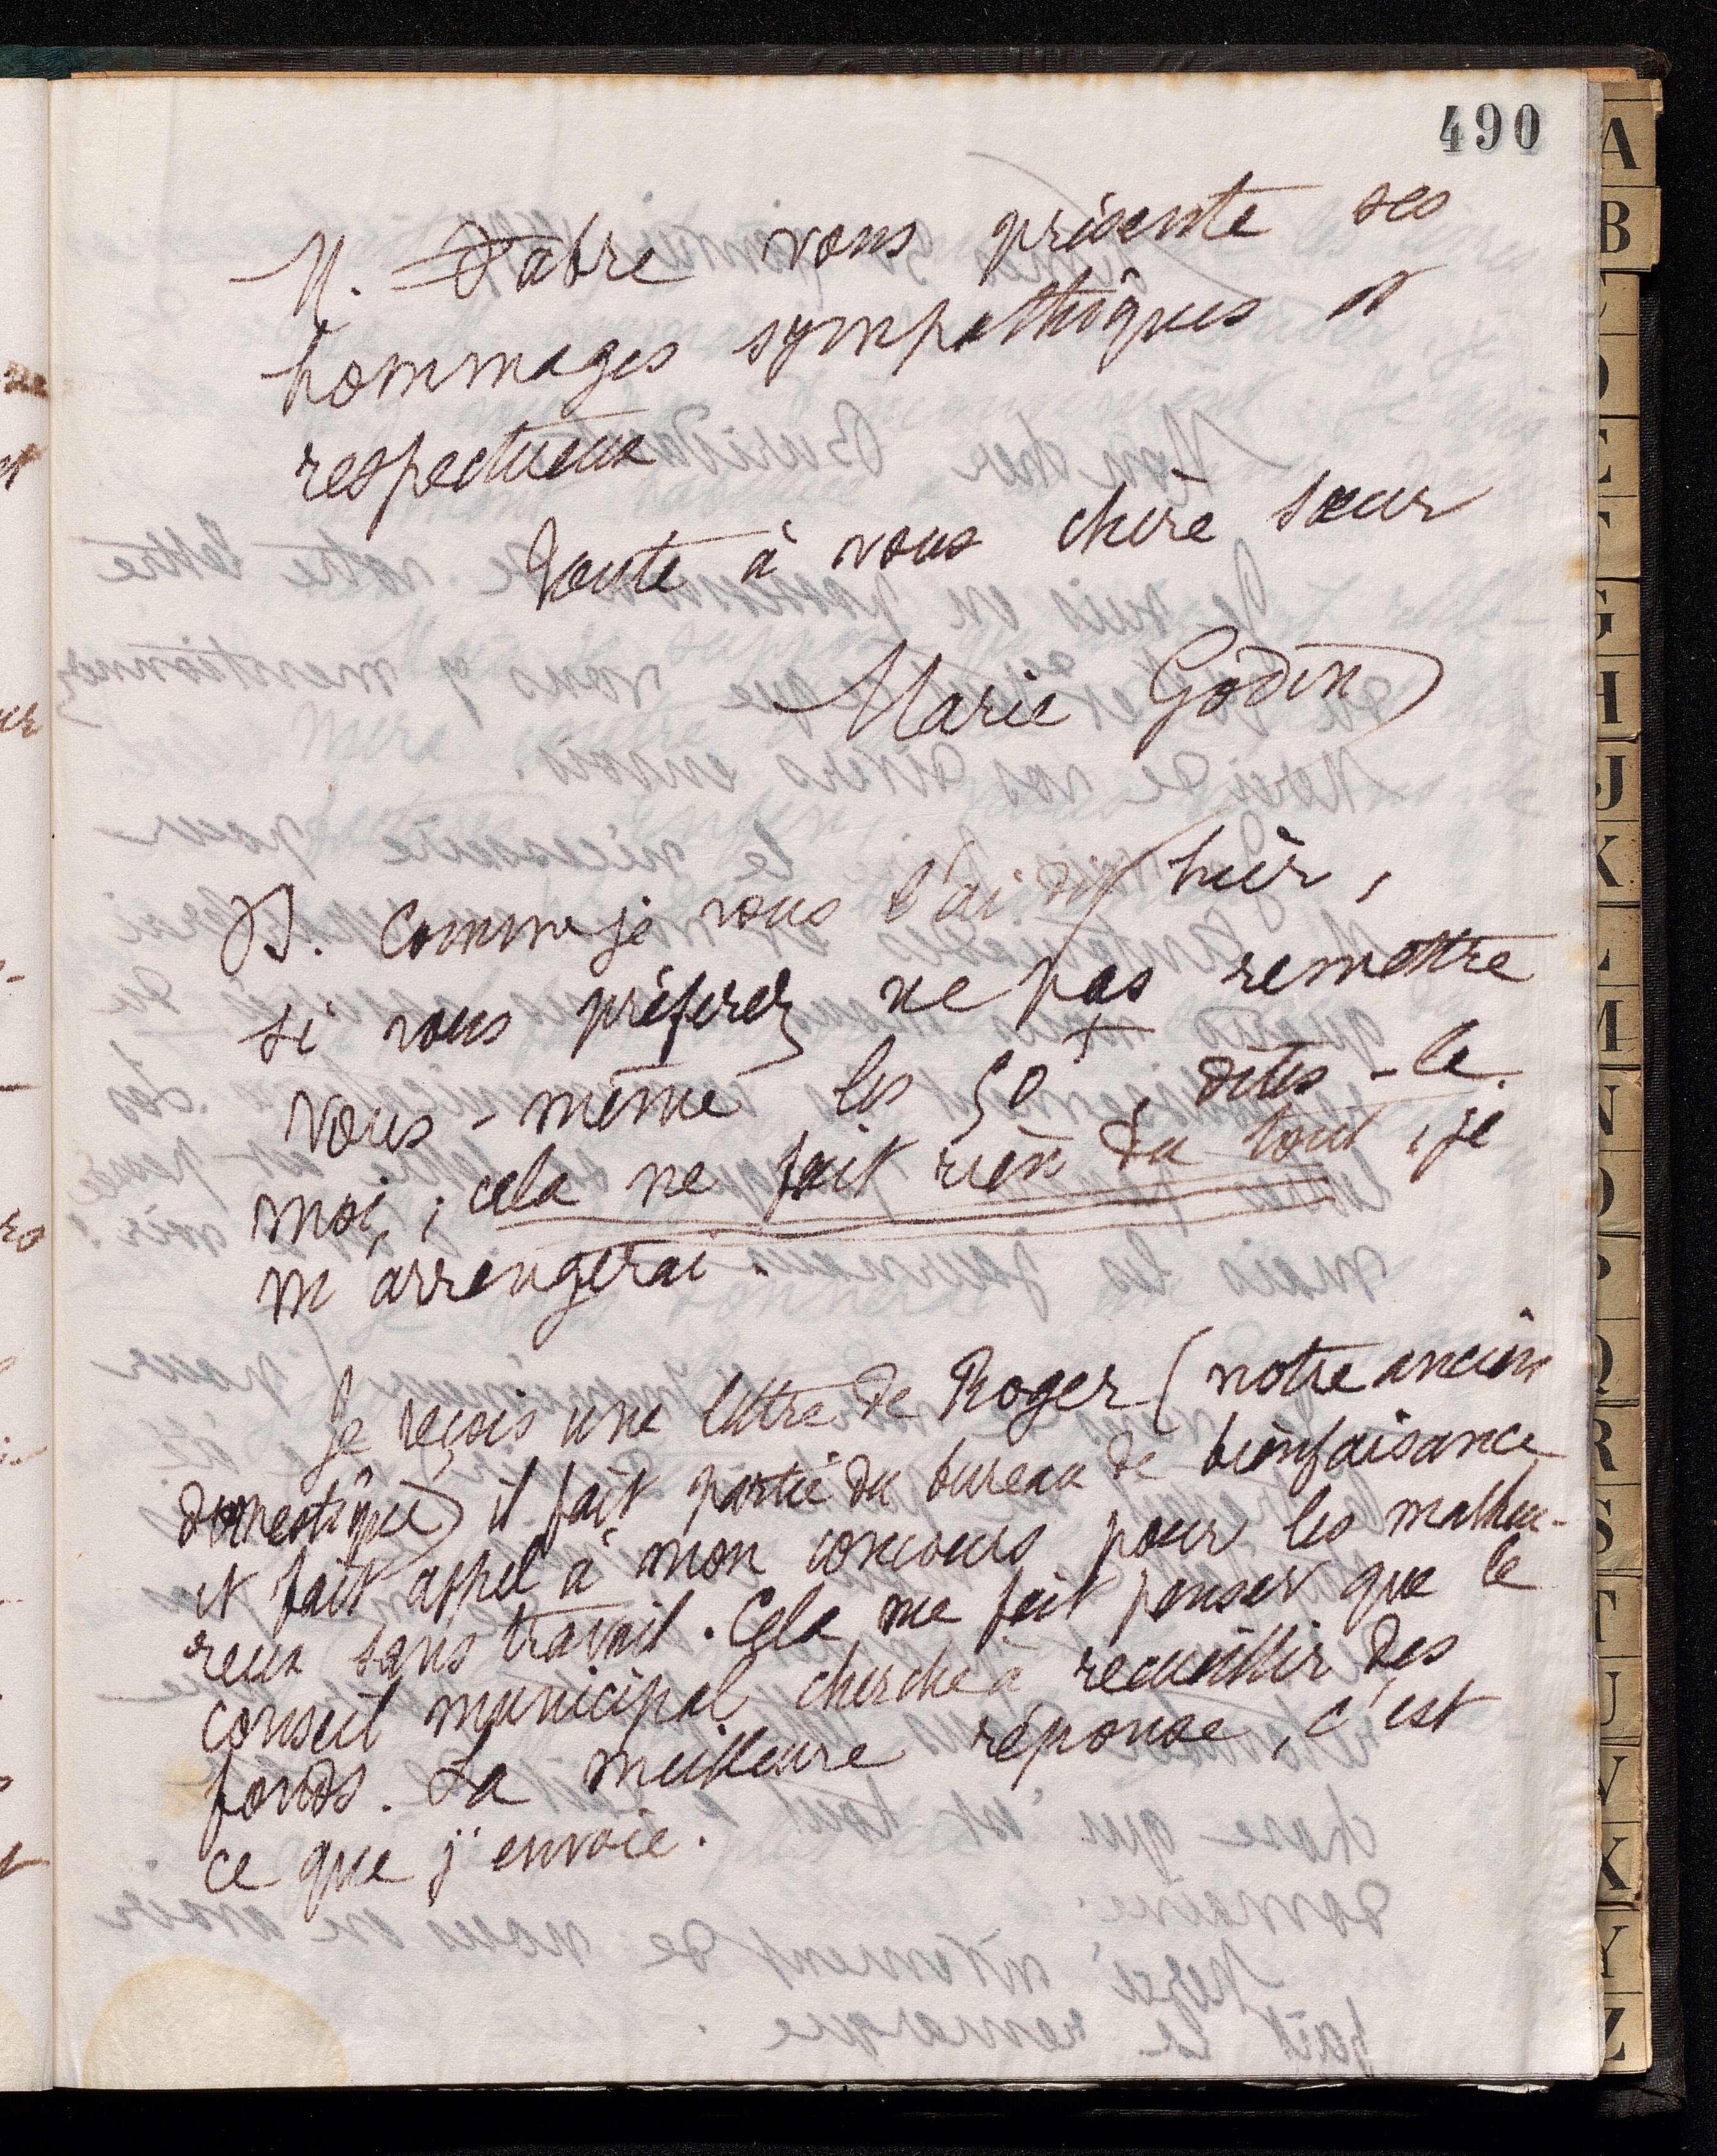 490
M. Fabre vous présente ses
hommages sympathiques et
respectueux
Toute à vous chère sœur
Marie Godin
P.S. Comme je vous l'ai dit hier,
si vous préférez ne pas remettre
vous-même les 50f, dites-le
moi, ; cela ne fait rien du tout, je
m'arrangerai.
Je reçois une lettre de Roger (notre ancien
domestique) il fait partie du bureau de bienfaisance
et fait appel à mon concours pour les malheu-
reux sans travail. Cela me fait penser que le
conseil municipal cherche à recueillir des
fonds. La meilleure réponse, c'est
ce que j'envoie.
A
B
C
D
E
F
G
H
J
K
L
M
N
O
P
Q
R
S
T
U
V
X
Y
Z